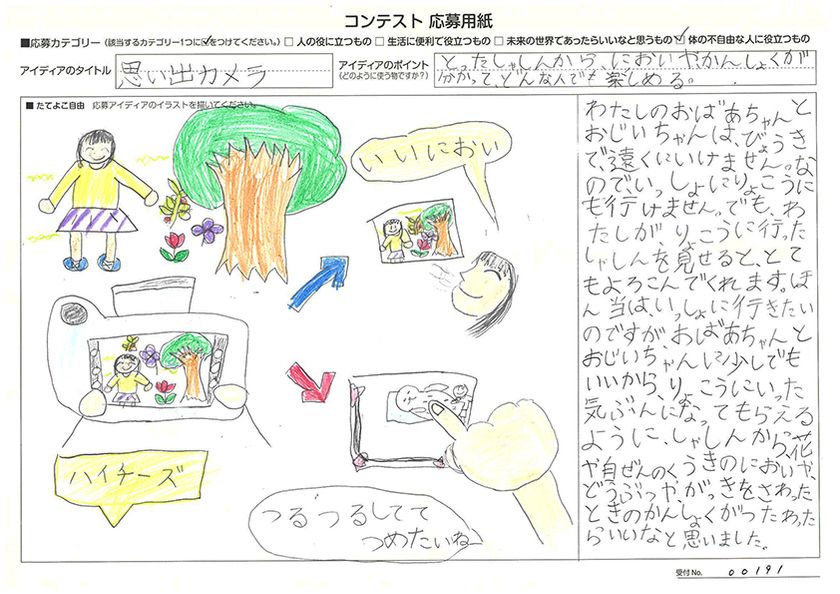 コンテスト 応募用紙
■応募カテゴリー (該当するカテゴリー1つに✓をつけてください。) □ 人の役に立つもの □ 生活に便利で役立つもの □ 未来の世界であったらいいなと思うもの ☑ 体の不自由な人に役立つもの
アイディアのタイトル
思い出カメラ
アイディアのポイント
(どのように使う物ですか?)
とったしゃしんから、においやかんしょくが
分かって、どんな人でも楽しめる。
■ たてよこ自由 応募アイディアのイラストを描いてください。
いいにおい
ハイチーズ
つるつるしてて
つめたいねー
わたしのおばあちゃんと
おじいちゃんは、びょうき
で遠くにいけません。な
のでいっしょにりょこうに
も行けません。でも、わ
たしがりょこうに行った
しゃしんを見せると、とて
もよろこんでくれます。ほ
ん当は、いっしょに行きたい
のですが、おばあちゃんと
おじいちゃんに少しでも
いいから、りょこうにいった
気ぶんになってもらえる
ように、しゃしんから、花
や自ぜんのくうきのにおいや、
どうぶつや、がっきをさわった
ときのかんしょくがつたわった
らいいなと思いました。
受付No. 00191